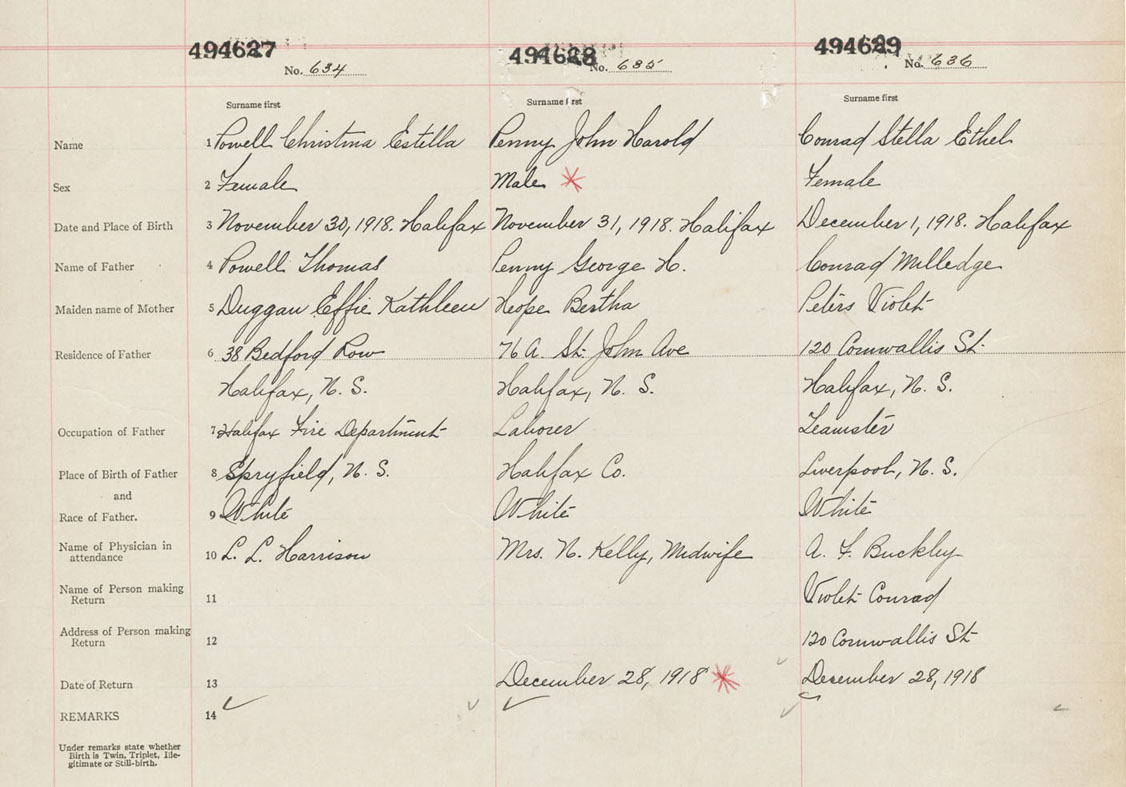 494627 494628 494629
No. 634 No. 635 No. 636
Surname first Surname first Surname first
Name 1 Powell Christina Estella Penny John Harold Conrad Stella Ethel
Sex 2 Female Male Female
Date and Place of Birth 3 November 30, 1918. Halifax November 31, 1918. Halifax December 1, 1918. Halifax
Name of Father 4 Powell Thomas Penny George H. Conrad Milledge
Maiden name of Mother 5 Duggan Effie Kathleen Bertha Peters Violet
Residence of Father 6 38 Bedford Row 76 A. St. John Ave 120 Cornwallis St.
Halifax, N. S. Halifax, N. S. Halifax, N. S.
Occupation of Father 7 Halifax Fire Department Laborer Teamster
Place of Birth of Father 8 Spryfield, N. S. Halifax Co. Liverpool, N. S.
and
Race of Father. 9 White White White
Name of Physician in
attendance 10 L. L. Harrison Mrs. N. Kelly, Midwife A. F. Buckley
Name of Person making
Return 11 Violet Conrad
Address of Person making
Return 12 120 Cornwallis St
Date of Return 13 December 28, 1918 December 28, 1918
REMARKS 14
Under remarks state whether
Birth is Twin, Triplet, Ille-
gitimate or Still-birth.